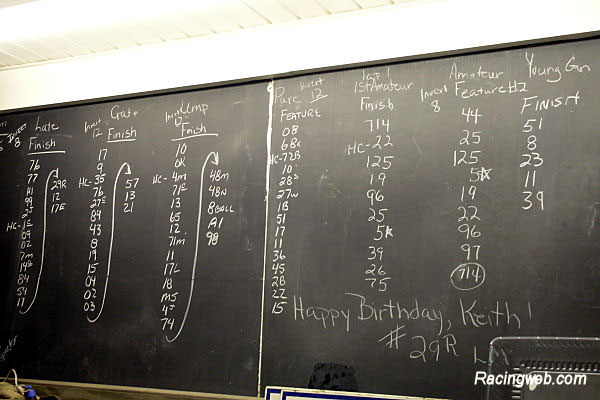 Invert
8
Late
Finish
76
77
A1
99
HC-1E
09
02
7m
14B
84
54
17
29R
12
17E
Invert
12
Crate
Finish
17
9
HC-35
76
27E
84
43
8
19
15
04
02
03
57
13
21
Invert
Ump
Finish
10
0K
HC-4m
71E
13
65
12
71m
11
17L
18
M5
4J
74
48m
48N
8BALL
A1
98
Pure
Invert
12
FEATURE
08
68x
HC-72B
10
28S
27W
1B
51
17
11
36
45
28
22
15
Lap 1
1st Amateur
Finish
714
HC-22
125
19
96
25
5k
39
26
75
Invert
8
Amateur
Feature #2
44
25
125
5k
19
22
96
97
714
Young Gun
FINISH
51
8
23
11
39
Happy Birthday, Keith!
#29R LM
Racingweb.com